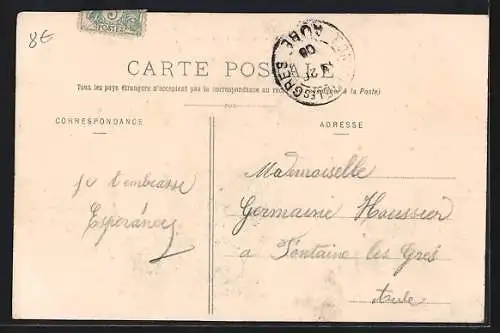 8€
5
POSTES
AUBE
08
21
LES GRES
CARTE POSTALE
Tous les pays étrangers n'acceptent pas la correspondance au recto (à la Poste)
CORRESPONDANCE
ADRESSE
je t'embrasse
Espérance
Mademoiselle
Germaine Houssier
a Fontaine les Grés
Aube